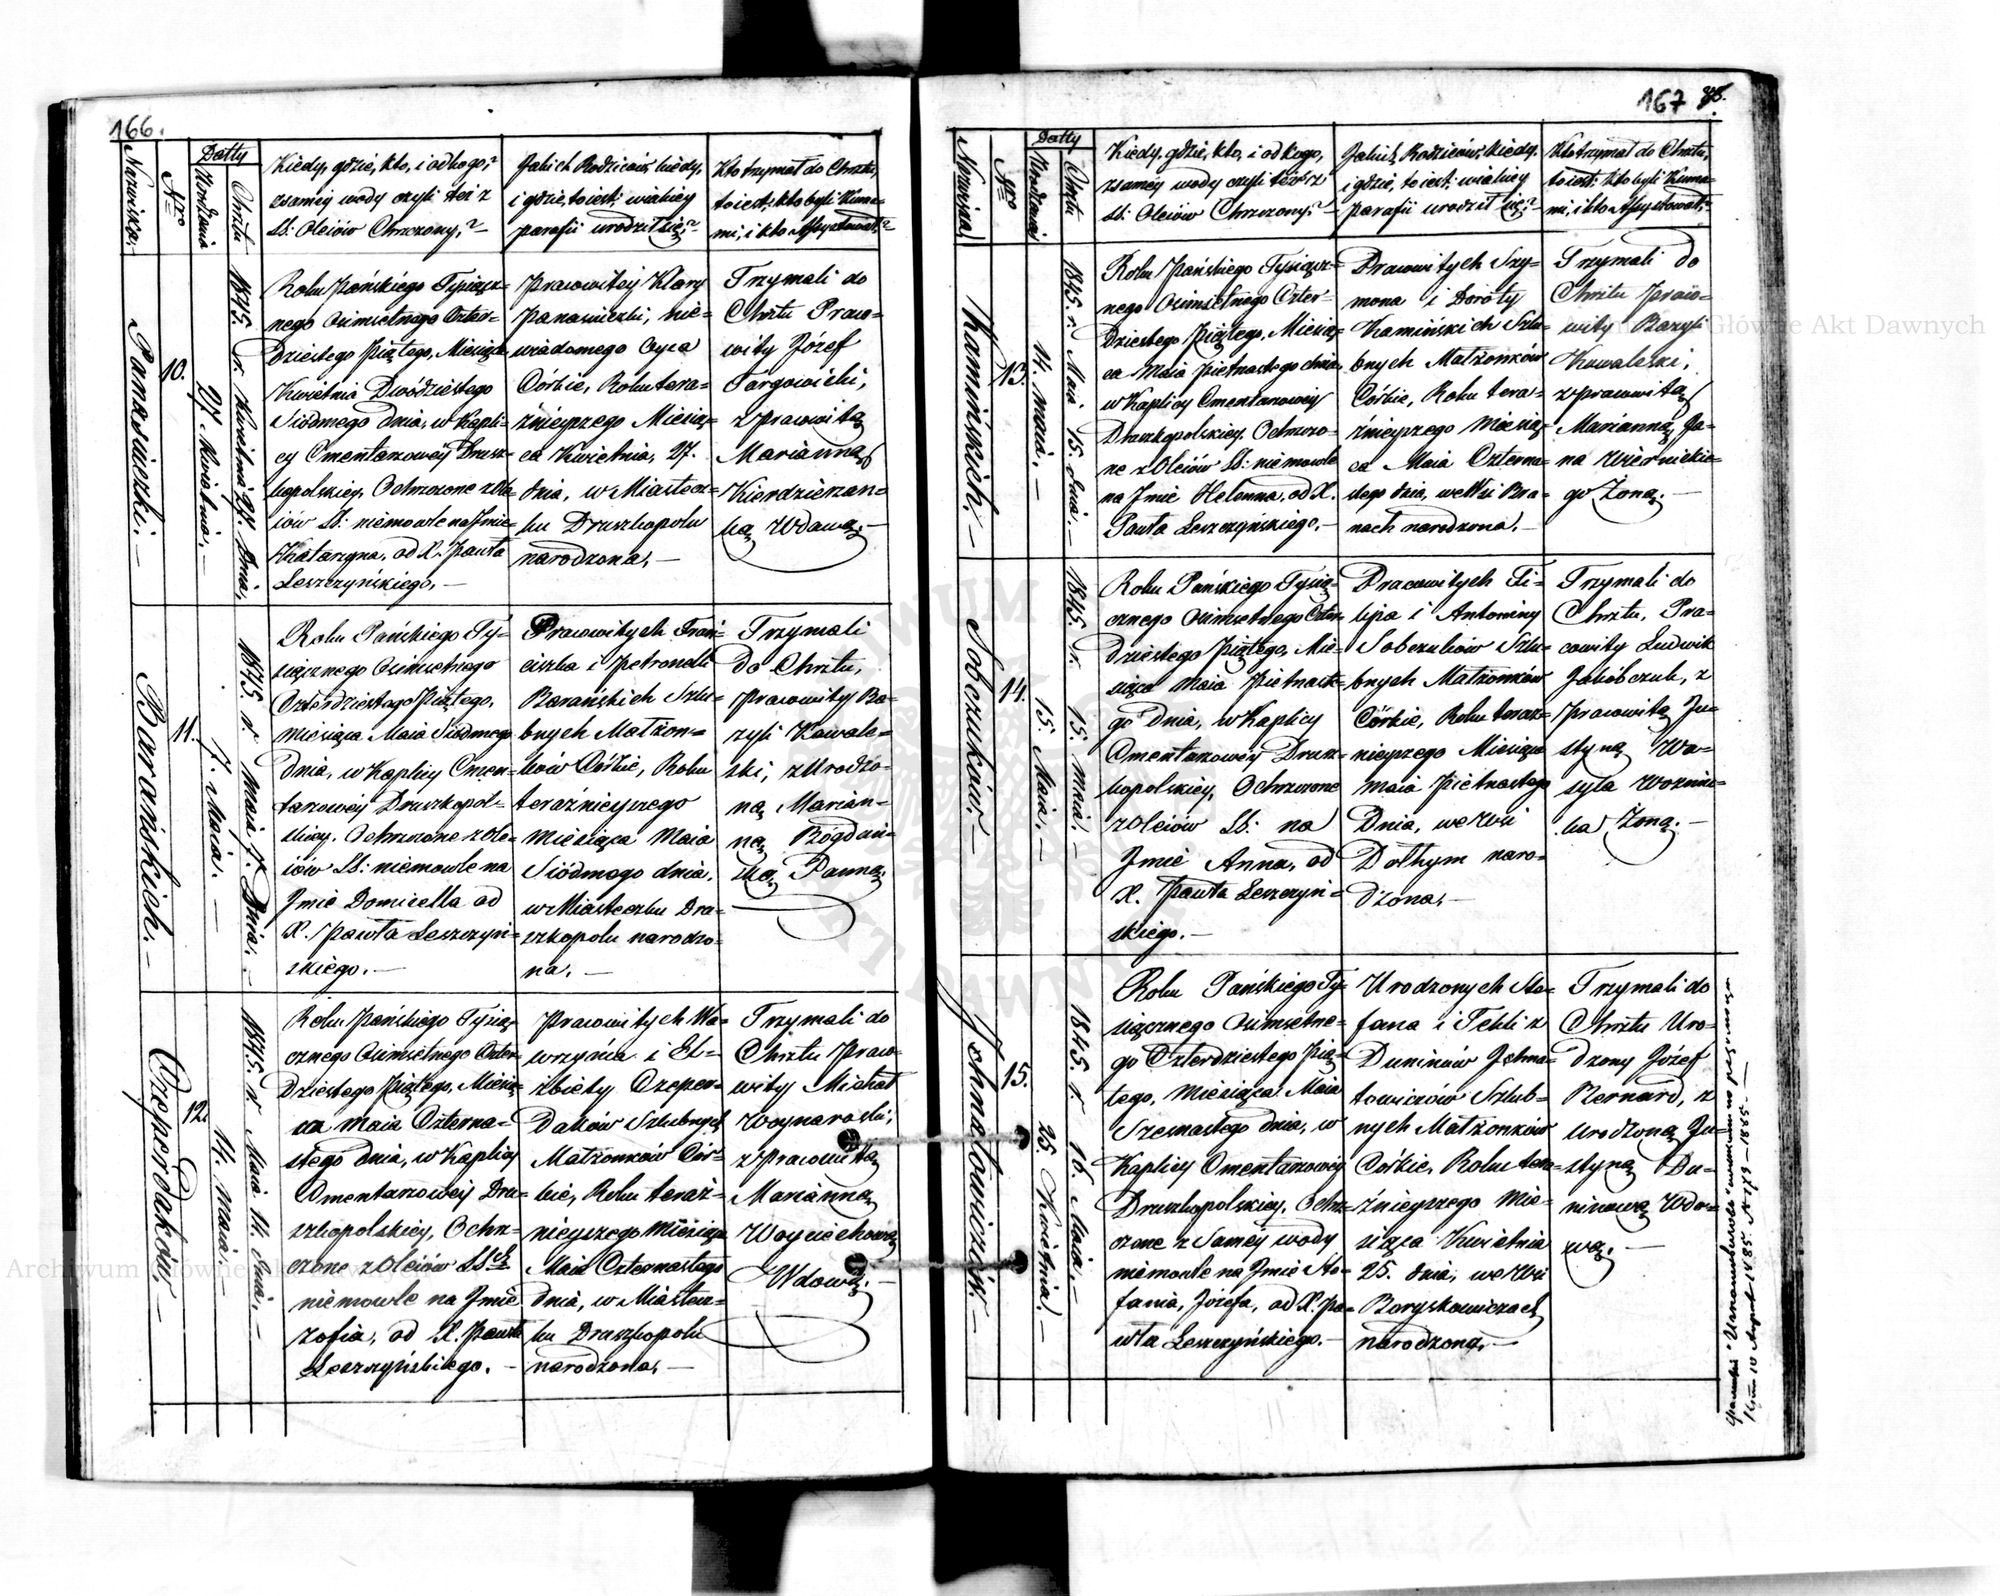 166.
Nazwisko.
Nro
Datty
Urodzenia
Chrztu
Kiedy, gdzie, kto, i od kogo,?
z samey wody czyli też z
SS: Oleiów Chrzczony,?
Jakich Rodziców, kiedy,
i gdzie, to iest: w iakiey
parafii urodził się,?
Kto trzymał do Chrztu,
to iest: kto byli Kuma=
mi, i kto Assystował,?
Panasiuczki.
10.
27. Kwietnia.
1845. r. Kwietnia 27. Dnia.
Roku Pańskiego Tysiącz=
nego Osimsetnego Czter=
dziestego Piątego, Miesiąca
Kwietnia Dwódziestego
Siódmego dnia, w Kapli=
cy Cmentarzowey Drusz=
kopolskiey, Ochrzczone z Ole=
iów SS: niemowle na Jmie
Katarzyna, od X. Pawła
Leszczyńskiego.
Pracowitey Klary
Panasiuczki, nie=
wiadomego Oyca
Córkie, Roku tera=
źnieyszego Miesią=
ca Kwietnia, 27.
dnia, w Miastecz=
ku Druszkopolu
narodzona.
Trzymali do
Chrztu Praco=
wity Józef
Targowicki,
z Pracowitą
Marianną
Kierdzierzan=
ką Wdową.
Barańskich.
11.
7. Maia.
1845. r. Maia 7. Dnia.
Roku Pańskiego Ty=
siącznego Osimsetnego
Czterdziestego Piątego,
Miesiąca Maia Siódmego
dnia, w Kaplicy Cmen=
tarzowey Druszkopol=
skiey, Ochrzczone z Ole=
iów SS: niemowle na
Jmie Domicella od
X. Pawła Leszczyń=
skiego.
Pracowitych Fran=
ciszka i Petronelli
Barańskich Szlu=
bnych Małżon=
ków Córkie, Roku
teraźnieyszego
Miesiąca Maia
Siódmego dnia,
w Miasteczku Dru=
szkopolu narodzo=
na.
Trzymali
do Chrztu,
Pracowity Ba=
zyli Kowale=
ski, z Urodzo=
ną Marian=
ną Bógdań=
ską Panną.
Czeperdaków.
12.
14. Maia.
1845. r. Maia 14. Dnia.
Roku Pańskiego Tysią=
cznego Osimsetnego Czter=
dziestego Piątego, Miesią=
ca Maia Czterna=
stego dnia, w Kaplicy
Cmentarzowey Dru=
szkopolskiey, Ochrz=
czone z Oleiów SSch
niemowle na Jmie
Zofia, od X. Pawła
Leszczyńskiego.
Pracowitych Wa=
wrzyńca i El=
żbiety Czeper=
daków Szlubnych
Małżonków Cór=
kie, Roku teraź=
nieyszego Miesiąca
Maia Czternastego
dnia, w Miastecz=
ku Druszkopolu
narodzona.
Trzymali do
Chrztu Praco=
wity Michał
Woynaroski,
z Pracowitą
Marianną
Woyciechową
Wdową.
167
Nazwiska
Nro
Datty
Urodzenia
Chrztu
Kiedy, gdzie, kto, i od kogo,
z samey wody czyli też z
SS: Oleiów Chrzczony,?
Jakich Rodziców, kiedy,
i gdzie, to iest: w iakiey
parafii urodził się,?
Kto trzymał do Chrztu,
to iest: kto byli Kuma=
mi, i kto Assystował,?
Kamińskich.
13.
14. Maia.
1845. r. Maia 15. dnia.
Roku Pańskiego Tysiącz=
nego Osimsetnego Czter=
dziestego Piątego, Miesią=
ca Maia Piętnastego dnia,
w Kaplicy Cmentarzowey
Druszkopolskiey, Ochrzczo=
ne z Oleiów SS: niemowle
na Jmie Helenna, od X.
Pawła Leszczyńskiego.
Pracowitych Szy=
mona i Doroty
Kamińskich Szlu=
bnych Małżonków
Córkie, Roku tera=
źnieyszego Miesią=
ca Maia Czterna=
stego dnia, we Wsi Bra=
nach narodzona.
Trzymali do
Chrztu Praco=
wity Bazyli
Kowaleski,
z Pracowitą
Marianną Ja=
na Wiernickie=
go Żoną.
Sobczuków.
14.
15. Maia.
1845. r. 15. Maia.
Roku Pańskiego Tysią=
cznego Osimsetnego Czter=
dziestego Piątego, Mie=
siąca Maia Piętnaste=
go dnia, w Kaplicy
Cmentarzowey Drusz=
kopolskiey, Ochrzczone
z Oleiów SS: na
Jmie Anna, od
X. Pawła Leszczyń=
skiego.
Pracowitych Fi=
lipa i Antoniny
Sobczuków Szlu=
bnych Małżonków
Córkie, Roku teraź=
nieyszego Miesiąca
Maia Piętnastego
Dnia, we Wsi
Dołhym naro=
dzona.
Trzymali do
Chrztu, Pra=
cowity Ludwik
Jakóbczuk, z
Pracowitą Ju=
styną Wa=
syla Woźnia=
ka Żoną.
Jchnatowiczów.
15.
25. Kwietnia.
1845. r. 16. Maia.
Roku Pańskiego Ty=
siącznego Osimsetne=
go Czterdziestego Pią=
tego, Miesiąca Maia
Szesnastego dnia, w
Kaplicy Cmentarzowey
Druszkopolskiey, Ochrz=
czone z Samey wody
niemowle na Jmie Ste=
fania, Józefa, od X. Pa=
wła Leszczyńskiego.
Urodzonych Ste=
fana i Tekli z
Duninów Jchna=
towiczów Szlub=
nych Małżonków
Córkie, Roku tera=
źnieyszego Mie=
siąca Kwietnia
25. dnia, we Wsi
Boryskowiczach
narodzona.
Trzymali do
Chrztu Uro=
dzony Józef
Bernard, z
Urodzoną Ju=
styną Du=
ninową Wdo=
wą.
Archiwum Główne Akt Dawnych
Archiwum Główne